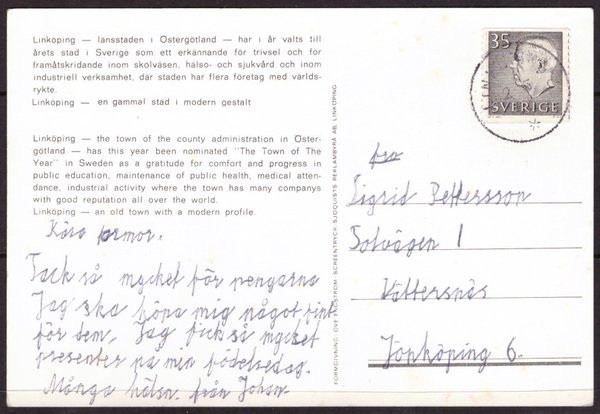 Linköping — lansstaden i Östergötland — har i år valts till
årets stad i Sverige som ett erkännande för trivsel och för
framåtskridande inom skolväsen, hälso- och sjukvård och inom
industriell verksamhet, där staden har flera företag med världs-
rykte.
Linköping — en gammal stad i modern gestalt
Linköping — the town of the county administration in Öster-
götland — has this year been nominated "The Town of The
Year" in Sweden as a gratitude for comfort and progress in
public education, maintenance of public health, medical atten-
dance, industrial activity where the town has many companys
with good reputation all over the world.
Linköping — an old town with a modern profile.
Kära farmor.
Tack så mycket för pengarna
Jag ska köpa mig något fint
för dem. Jag fick så mycket
presenter på min födelsedag.
Många hälsn. från Johan
FORMGIVNING: OVE ANGSTROM · SCREENTRYCK: SJÖQUISTS REKLAMBYRÅ AB, LINKÖPING
35
SVERIGE
fru
Sigrid Pettersson
Solvägen 1
Vättersnäs
Jönköping 6.